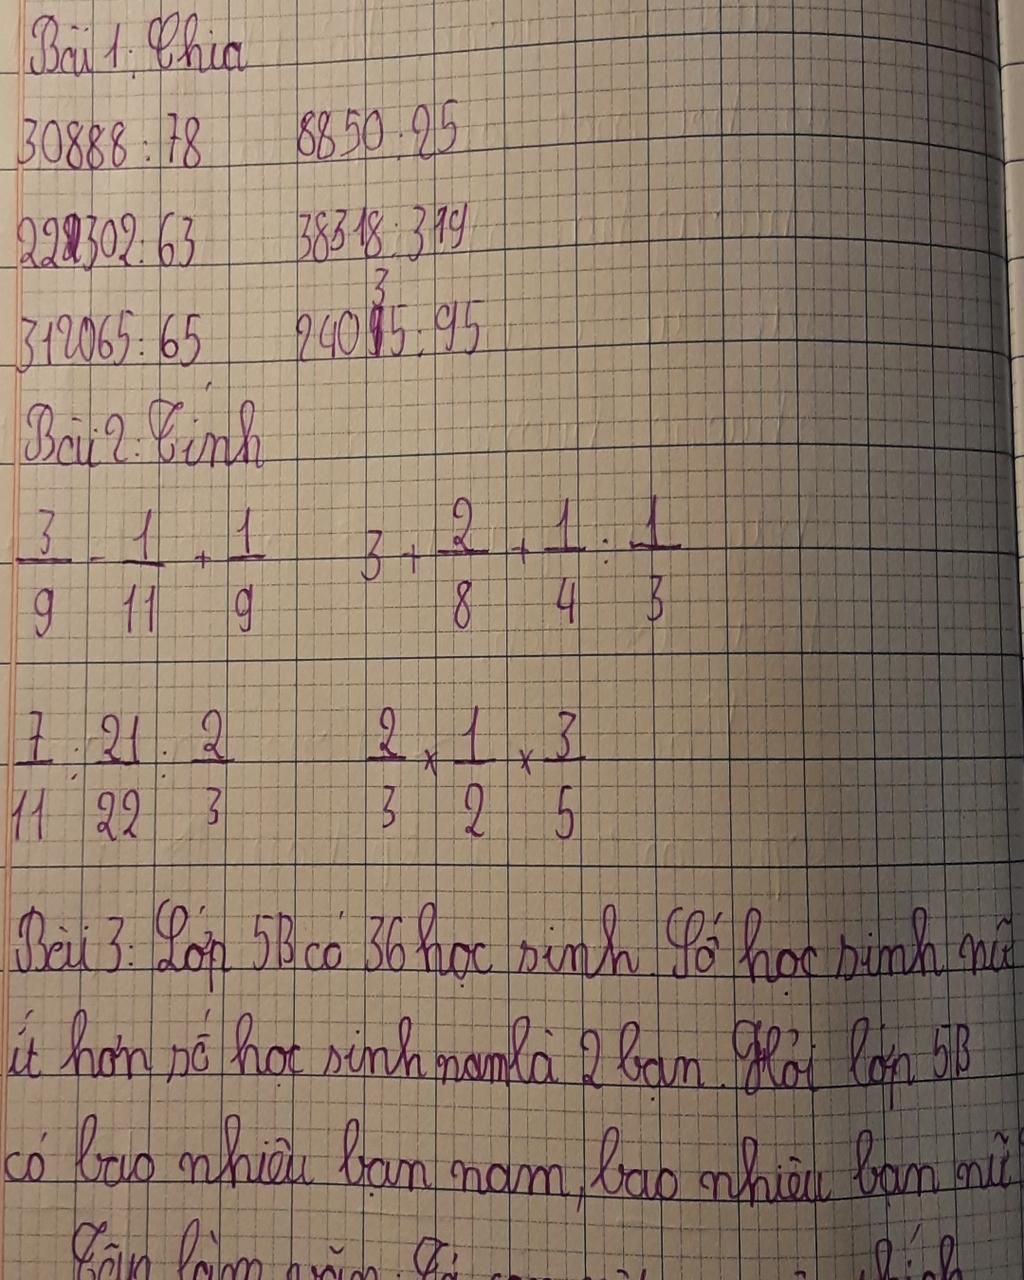 Bài 1: Chia
30888 : 78 8850 : 25
222302 : 63 38318 : 319
312065 : 65 24035 : 95
Bài 2: Tính
3/9 - 1/11 + 1/9 3 + 2/8 + 1/4 : 1/3
7/11 : 21/22 : 2/3 2/3 x 1/2 x 3/5
Bài 3: Lớp 5B có 36 học sinh. Số học sinh nữ
ít hơn số học sinh nam là 2 bạn. Hỏi lớp 5B
có bao nhiêu bạn nam, bao nhiêu bạn nữ